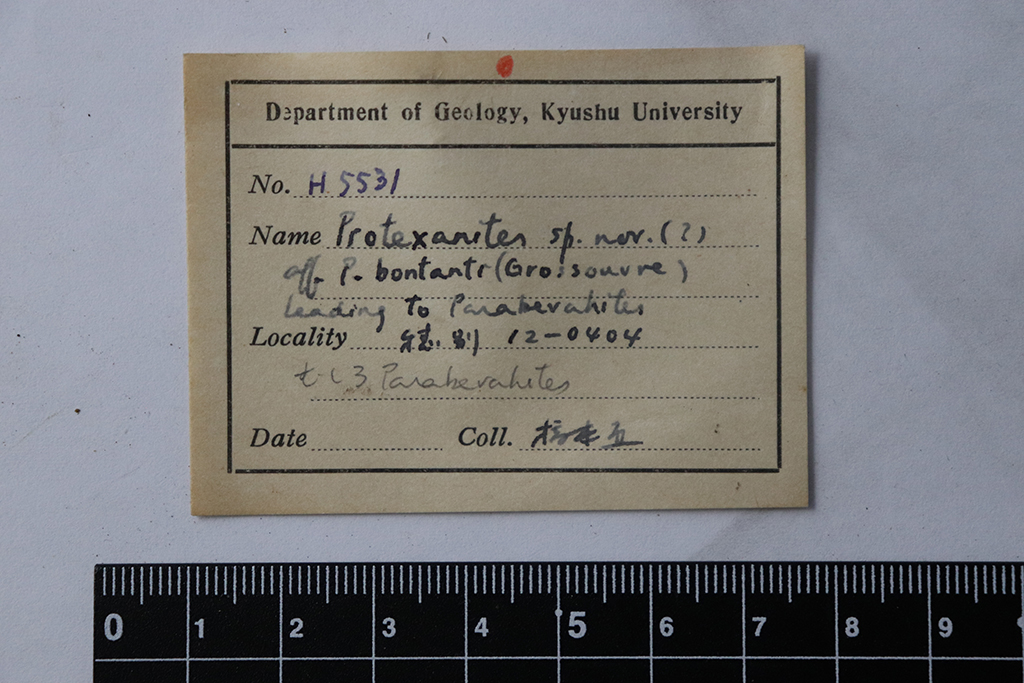 Department of Geology, Kyushu University
No. H 5531
Name Protexanites sp. nov. (?)
aff. P. bontanti (Grossouvre)
leading to Parabevahites
Locality 12-0404
むしろ Parabevahites
Date Coll.
0 1 2 3 4 5 6 7 8 9